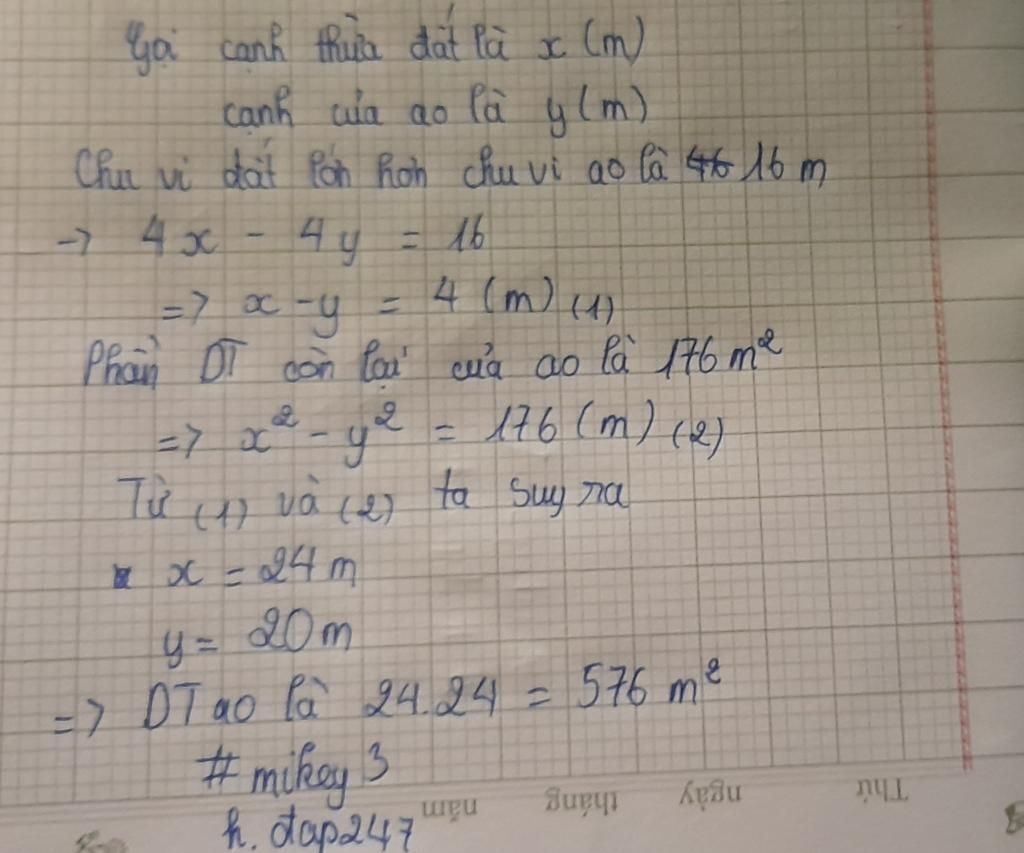 Gọi cạnh thửa đất là x (m)
cạnh của ao là y (m)
Chu vi đất lớn hơn chu vi ao là 16 m
→ 4x - 4y = 16
=> x - y = 4 (m) (1)
Phần DT còn lại của ao là 176 m²
=> x² - y² = 176 (m) (2)
Từ (1) và (2) ta suy ra
x = 24 m
y = 20 m
=> DT ao là 24.24 = 576 m²
# mikey 3
h. đap247
Thứ ngày tháng năm